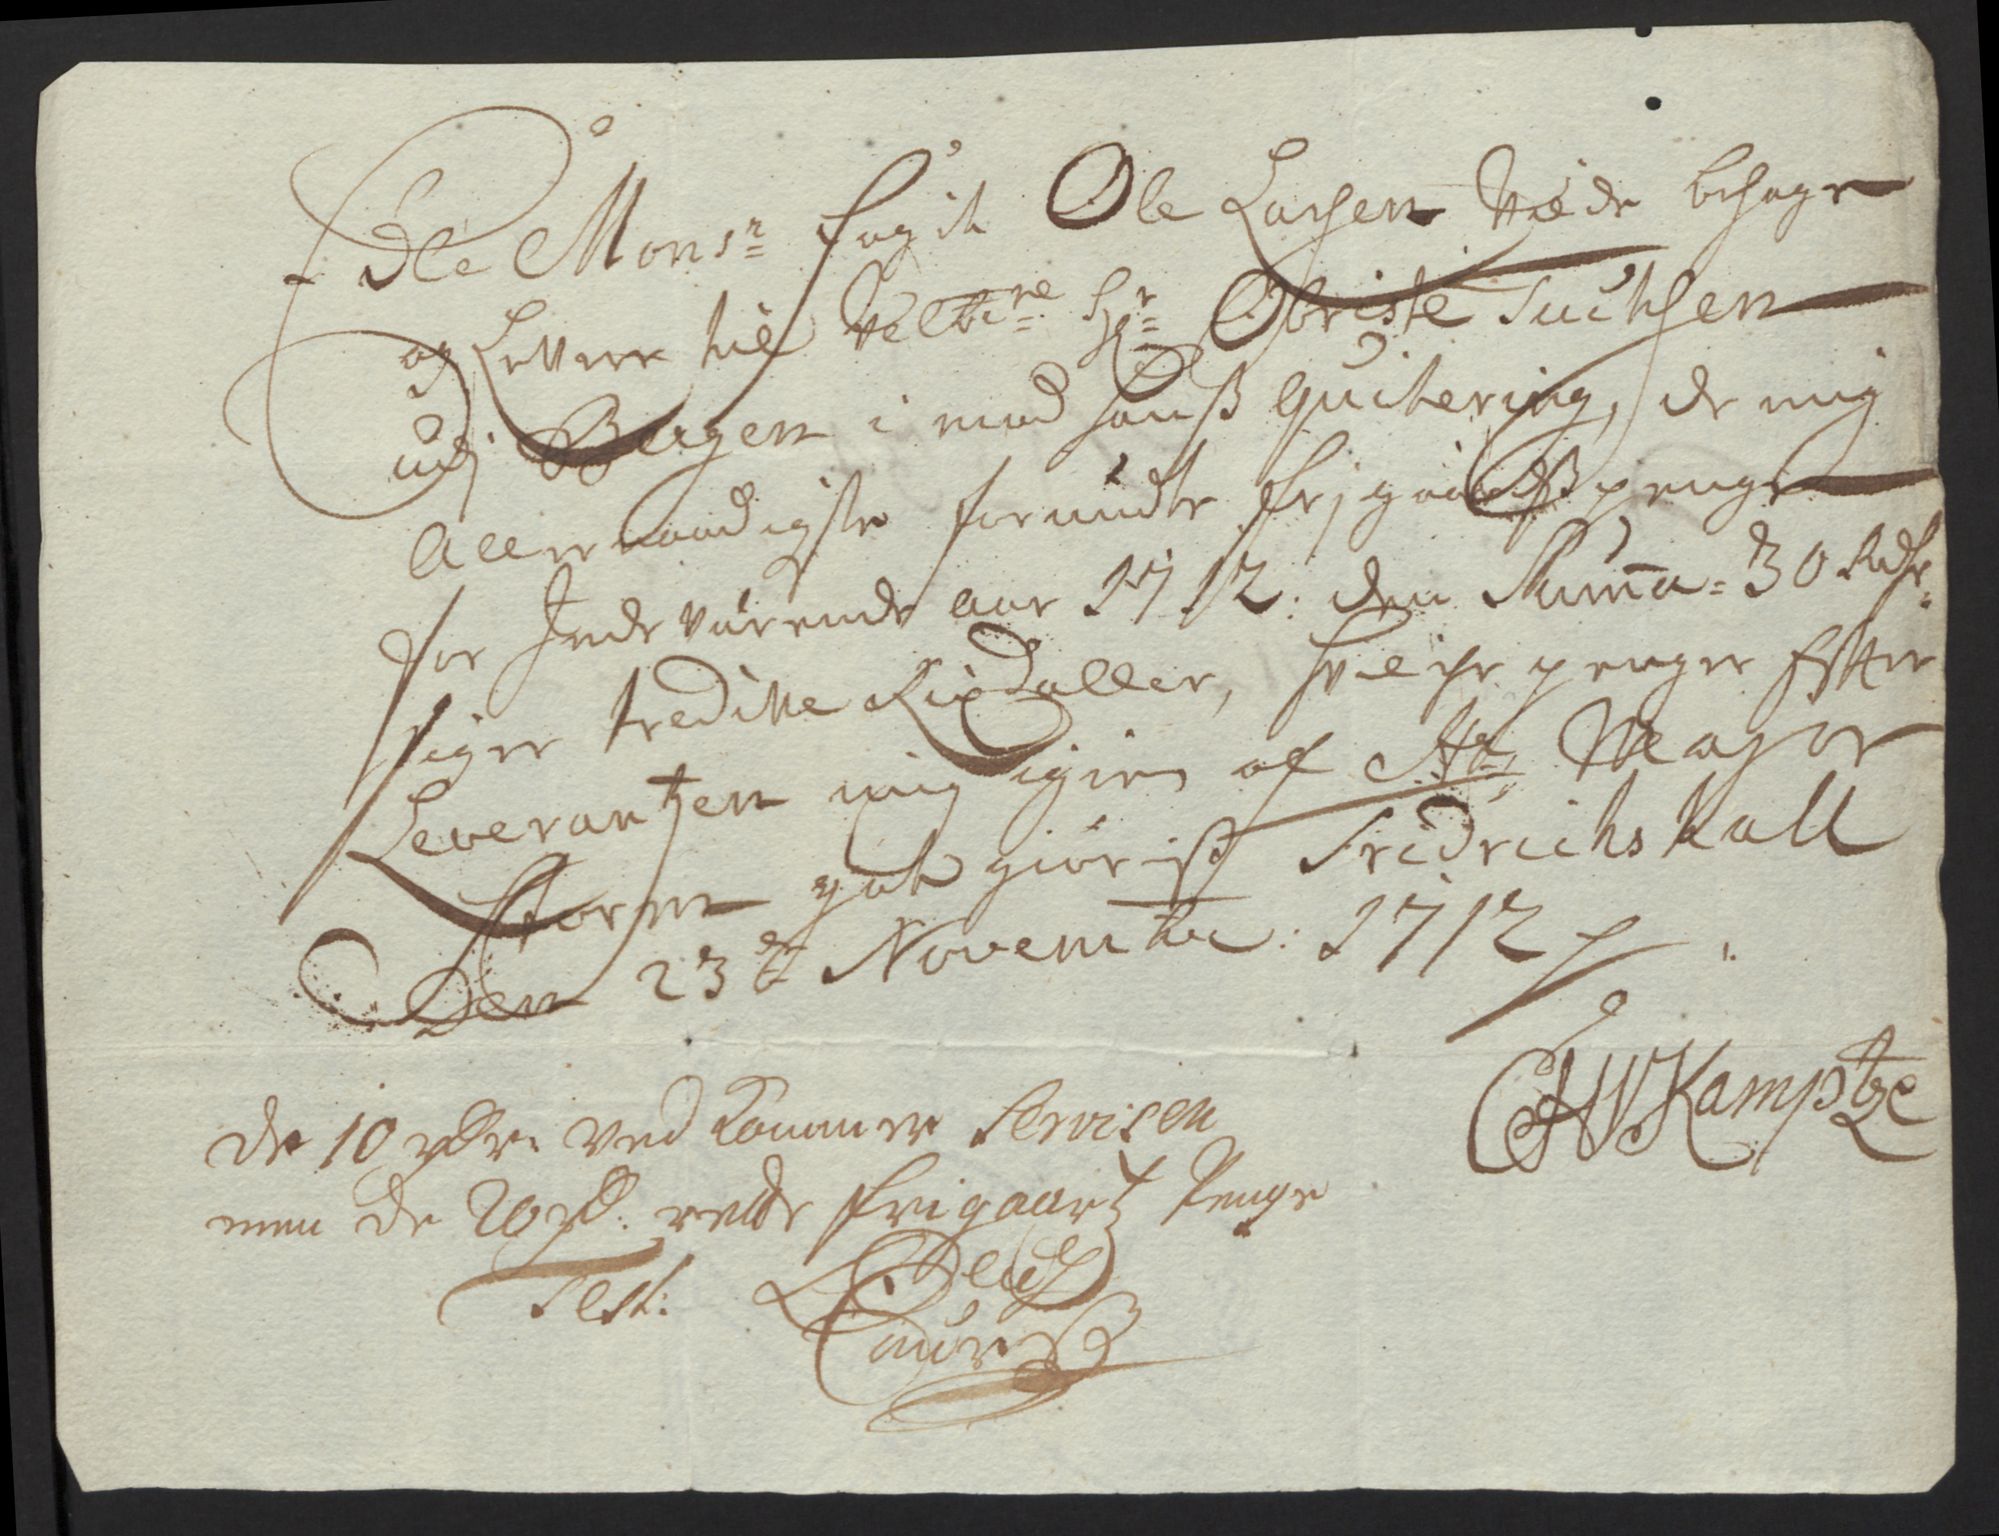 Edle Monsr fogit Ole Larsen Vilde behage
og Levere till velbrne Hr Obriste Tuchsen
udj Bergen i mod hanß quitering, de mig
Allernaadigste forundte frj gaardß penge
for Indeværende aar 1712: den Summa = 30 Rdlr
siger tredive Rixdaller, hvilche penger Efter
Leverantzen mig igien af Hr Major
Storm got giøriß Fridrichshall
Den 23de November: 1712
CHVKamptze
De 10 rdr. ved Commer Servisen
men de 20 rd. rette frigaartz Penge
Test:
Lauriß